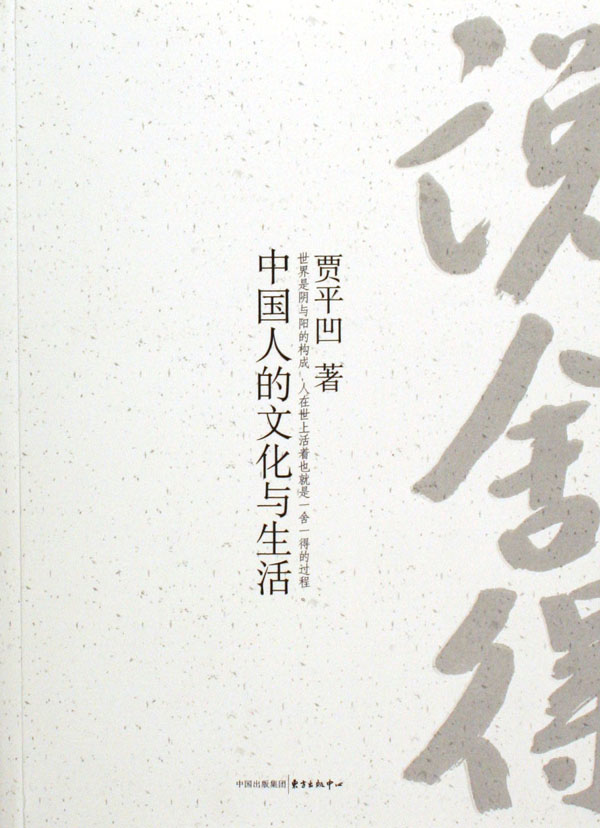 说舍得
贾平凹 著
世界是阴与阳的构成，人在世上活着也就是一舍一得的过程
中国人的文化与生活
中国出版集团 东方出版中心